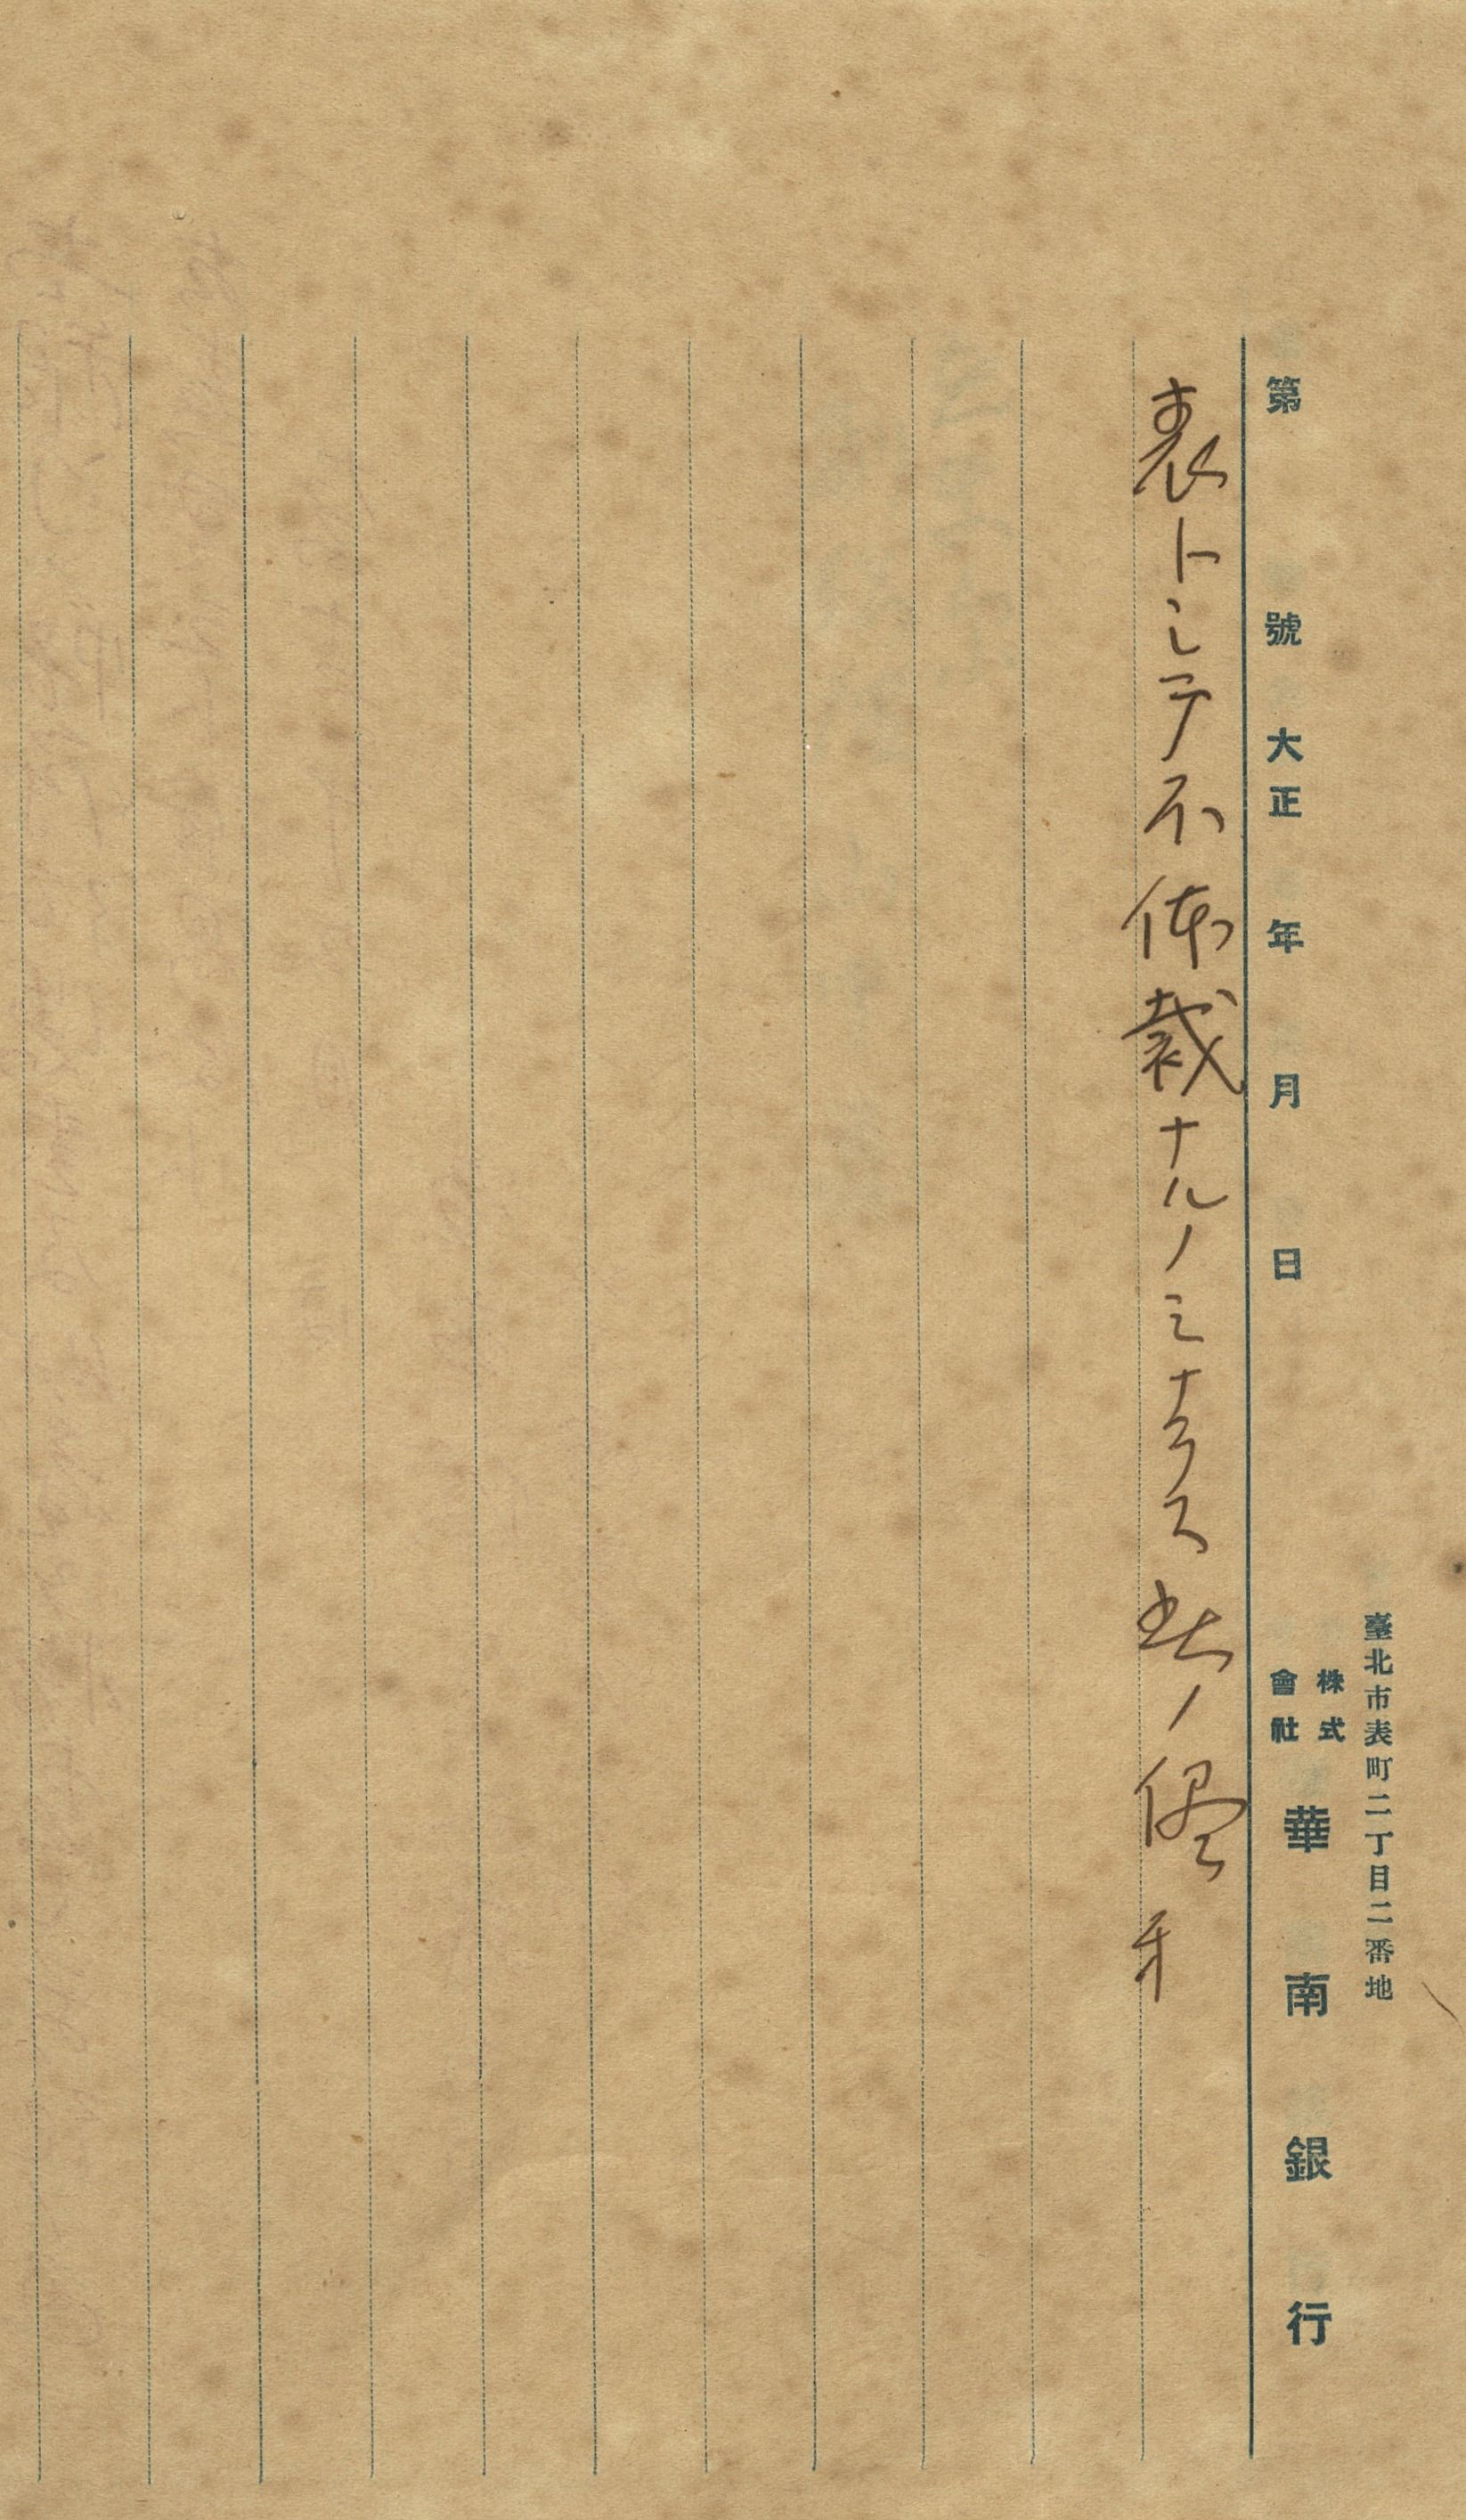 臺北市表町二丁目二番地
株式會社 華南銀行
第 號 大正 年 月 日
表トシテ不体裁ナルノミナラス此ノ儘